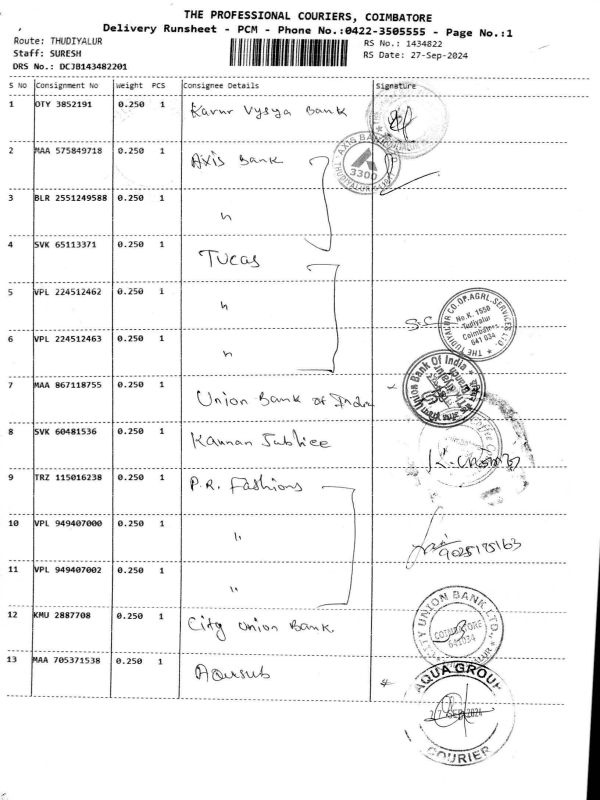 THE PROFESSIONAL COURIERS, COIMBATORE
Delivery Runsheet - PCM - Phone No.:0422-3505555 - Page No.:1
Route: THUDIYALUR
RS No.: 1434822
Staff: SURESH
RS Date: 27-Sep-2024
DRS No.: DCJB143482201
S No Consignment No Weight PCS Consignee Details Signature
1 OTY 3852191 0.250 1 Karur Vysya Bank
2 MAA 575849718 0.250 1 Axis Bank
AXIS BANK
3300
THUDIYALUR
3 BLR 2551249588 0.250 1 "
4 SVK 65113371 0.250 1 Tucas
5 VPL 224512462 0.250 1 "
THE TUDIYALUR CO.OP.AGRL.SERVICES LTD.
No.K. 1550
Tudiyalur
Coimbatore
641 034
6 VPL 224512463 0.250 1 "
7 MAA 867118755 0.250 1 Union Bank of India
Union Bank Of India
8 SVK 60481536 0.250 1 Kannan Jubliee
9 TRZ 115016238 0.250 1 P.R. Fashions
10 VPL 949407000 0.250 1 "
9025175163
11 VPL 949407002 0.250 1 "
12 KMU 2887708 0.250 1 City Union Bank
CITY UNION BANK LTD.
COIMBATORE
641034
13 MAA 705371538 0.250 1 Aqusub
AQUA GROUP
27 SEP 2024
COURIER